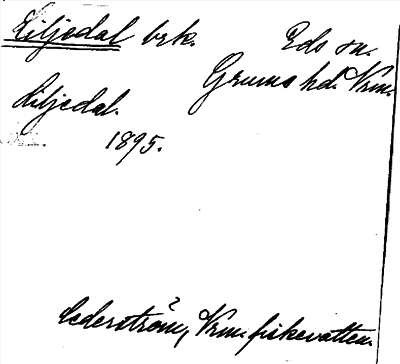 Liljedal brk.
Eds sn.
Grums hd. Vrm.
Liljedal.
1895.
Cederström, Vrm. fiskevatten.